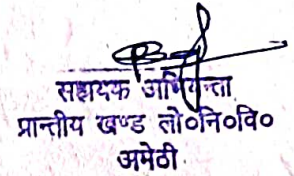 सहायक अभियन्ता
प्रान्तीय खण्ड लो०नि०वि०
अमेठी